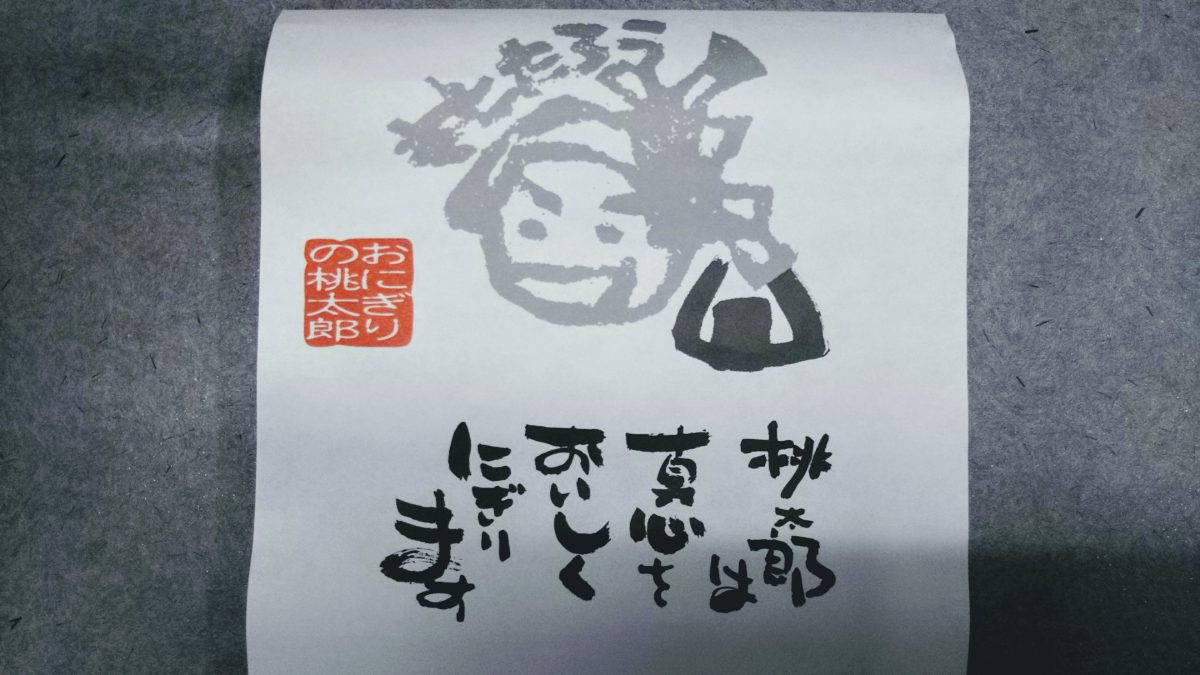 おにぎり
の桃太郎
桃太郎は
真心を
おいしく
にぎり
ます